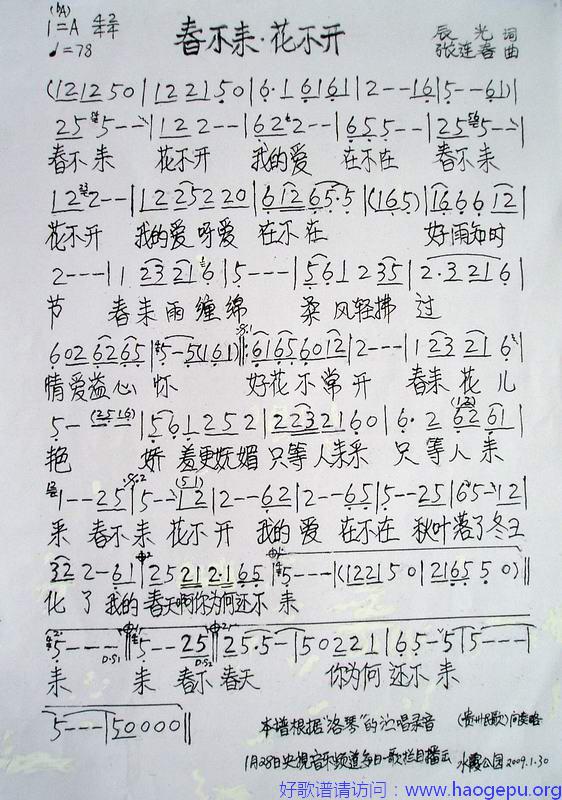 (♭A)
1=A 4/4 2/4
♩=78
春不来·花不开
辰光 词
张连春 曲
(12 12 5 0 | 12 21 5 0 | 6·1 61 61 | 2 - - 16 | 5 - - 61) |
25 5 - - | 12 2 - - | 62 2 - - | 65 5 - - | 25 5 - - |
春不来 花不开 我的爱 在不在 春不来
12 2 - - | 12 25 2 20 | 612 65·5 | (165) | 16 6 6 12 |
花不开 我的爱呀爱 在不在 好雨知时
2 - - - | 1 23 21 6 | 5 - - - | 56 1 2 35 | 2·3 21 6 |
节 春来雨缠绵 柔风轻拂过
602 62 65 | 5 - 5(161) | 61 65 60 12 | 2 - - - | 1 23 21 6 |
情爱益心怀 好花不常开 春来花儿
5 - (25 16) | 56 1 2 52 | 2 23 21 60 | 6· 2 62 61 |
艳 娇羞更妩媚 只等人来采 只等人来
1 - - 25 | 5 - - 12 | 2 - - 62 | 2 - - 65 | 5 - - 25 | 65 - 12 |
采 春不来 花不开 我的爱 在不在 秋叶落了冬又
32 2 - 61 | 25 21 2·1 65 | 5 - - - | (12 21 5 0 | 21 65 5 0) ‖
化了 我的春天啊你为何还不来
5 - - - D.S1 | 5 - - 25 D.S2 | 25·5 - | 50 22 1 | 65 - 5 | 5 - - - |
来 来 春不春天 你为何还不来
5 - - - | 5 0 0 0 0 ‖
本谱根据“洛琴”的演唱录音 (贵州民歌) 间奏略
1月28日央视音乐频道每日一歌栏目播出 水霞公园 2009.1.30
好歌谱请访问：www.haogepu.org